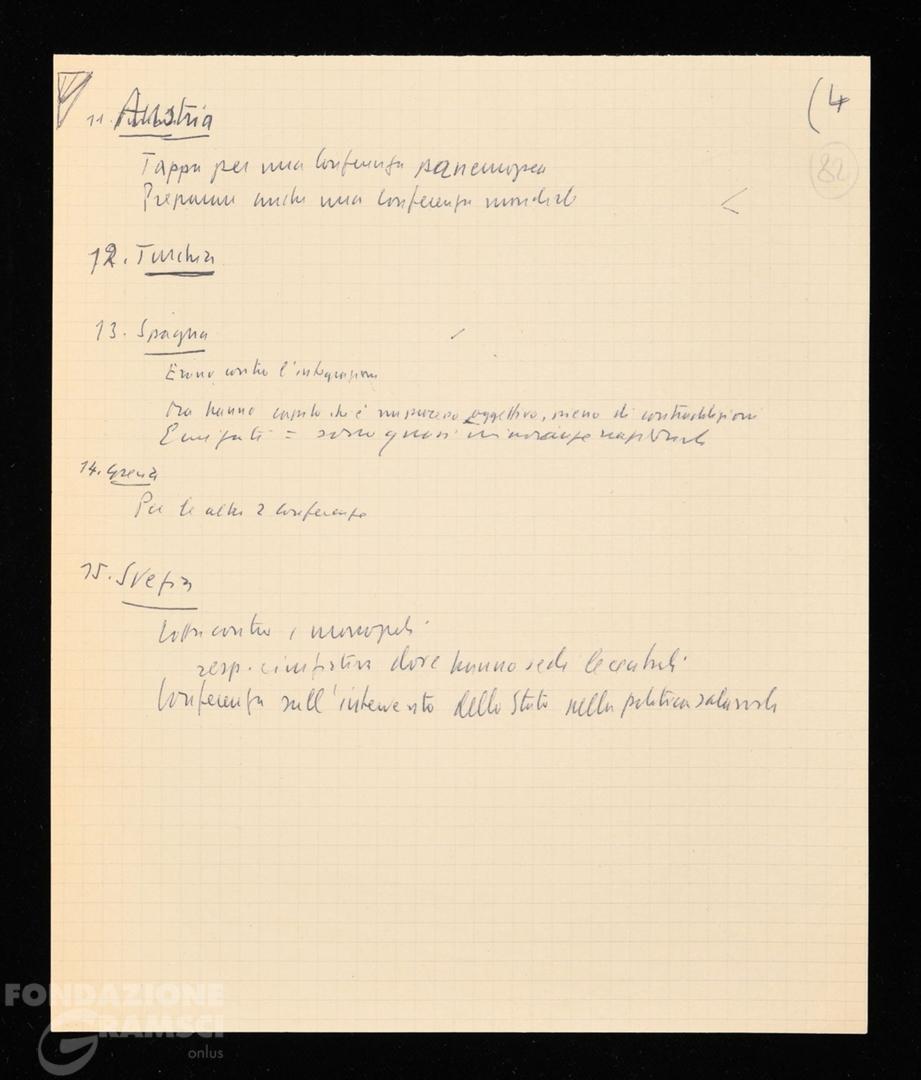 (4
82
11. Austria
Tappa per una Conferenza paneuropea
Preparare anche una Conferenza mondiale
12. Turchia
13. Spagna
Erano contro l'integrazione
Ora hanno capito che è un processo oggettivo, pieno di contraddizioni
Emigrati = sono quasi minoranze nazionali
14. Grecia
Per le altre 2 conferenze
15. Svezia
Lotta contro i monopoli
resp. iniziativa dove hanno sedi le centrali
Conferenza sull'intervento dello Stato nella politica salariale
FONDAZIONE
GRAMSCI
onlus